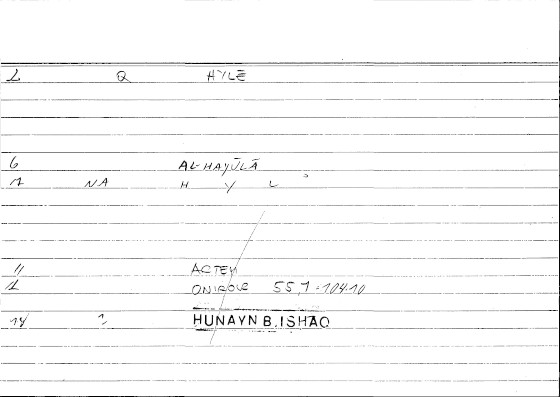 1 Q HYLĒ
6 AL-HAYŪLĀ
1 NA H Y L
11 ARTEM
12 ONIROCR 55,7 = 104.10
14 1, HUNAYN B. ISHAQ